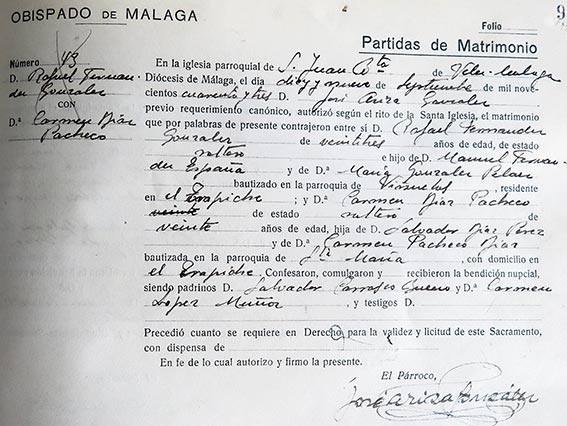 OBISPADO DE MALAGA
Folio 9
Partidas de Matrimonio
Número 43
D. Rafael Fernan-
dez Gonzalez
CON
D.ª Carmen Diaz
Pacheco
En la iglesia parroquial de S. Juan Bta de Velez-Malaga
Diócesis de Málaga, el día diez y nueve de Septiembre de mil nove-
cientos cuarenta y tres D. José Ariza Gonzalez
previo requerimiento canónico, autorizó según el rito de la Santa Iglesia, el matrimonio
que por palabras de presente contrajeron entre si D. Rafael Fernandez
Gonzalez de veintitres años de edad, de estado
soltero e hijo de D. Manuel Fernan-
dez España y de D.ª Maria Gonzalez Pelaez
bautizado en la parroquia de Viñuelas, residente
en el Trapiche; y D.ª Carmen Diaz Pacheco
veinte de estado soltera de
veinte años de edad, hija de D. Salvador Diaz Perez
y de D.ª Carmen Pacheco Diaz
bautizada en la parroquia de Sta Maria, con domicilio en
el Trapiche. Confesaron, comulgaron y recibieron la bendición nupcial,
siendo padrinos D. Salvador y D.ª Carmen
Lopez Muñoz, y testigos D.
Precedió cuanto se requiere en Derecho para la validez y licitud de este Sacramento,
con dispensa de
En fe de lo cual autorizo y firmo la presente.
El Párroco,
José Ariza González